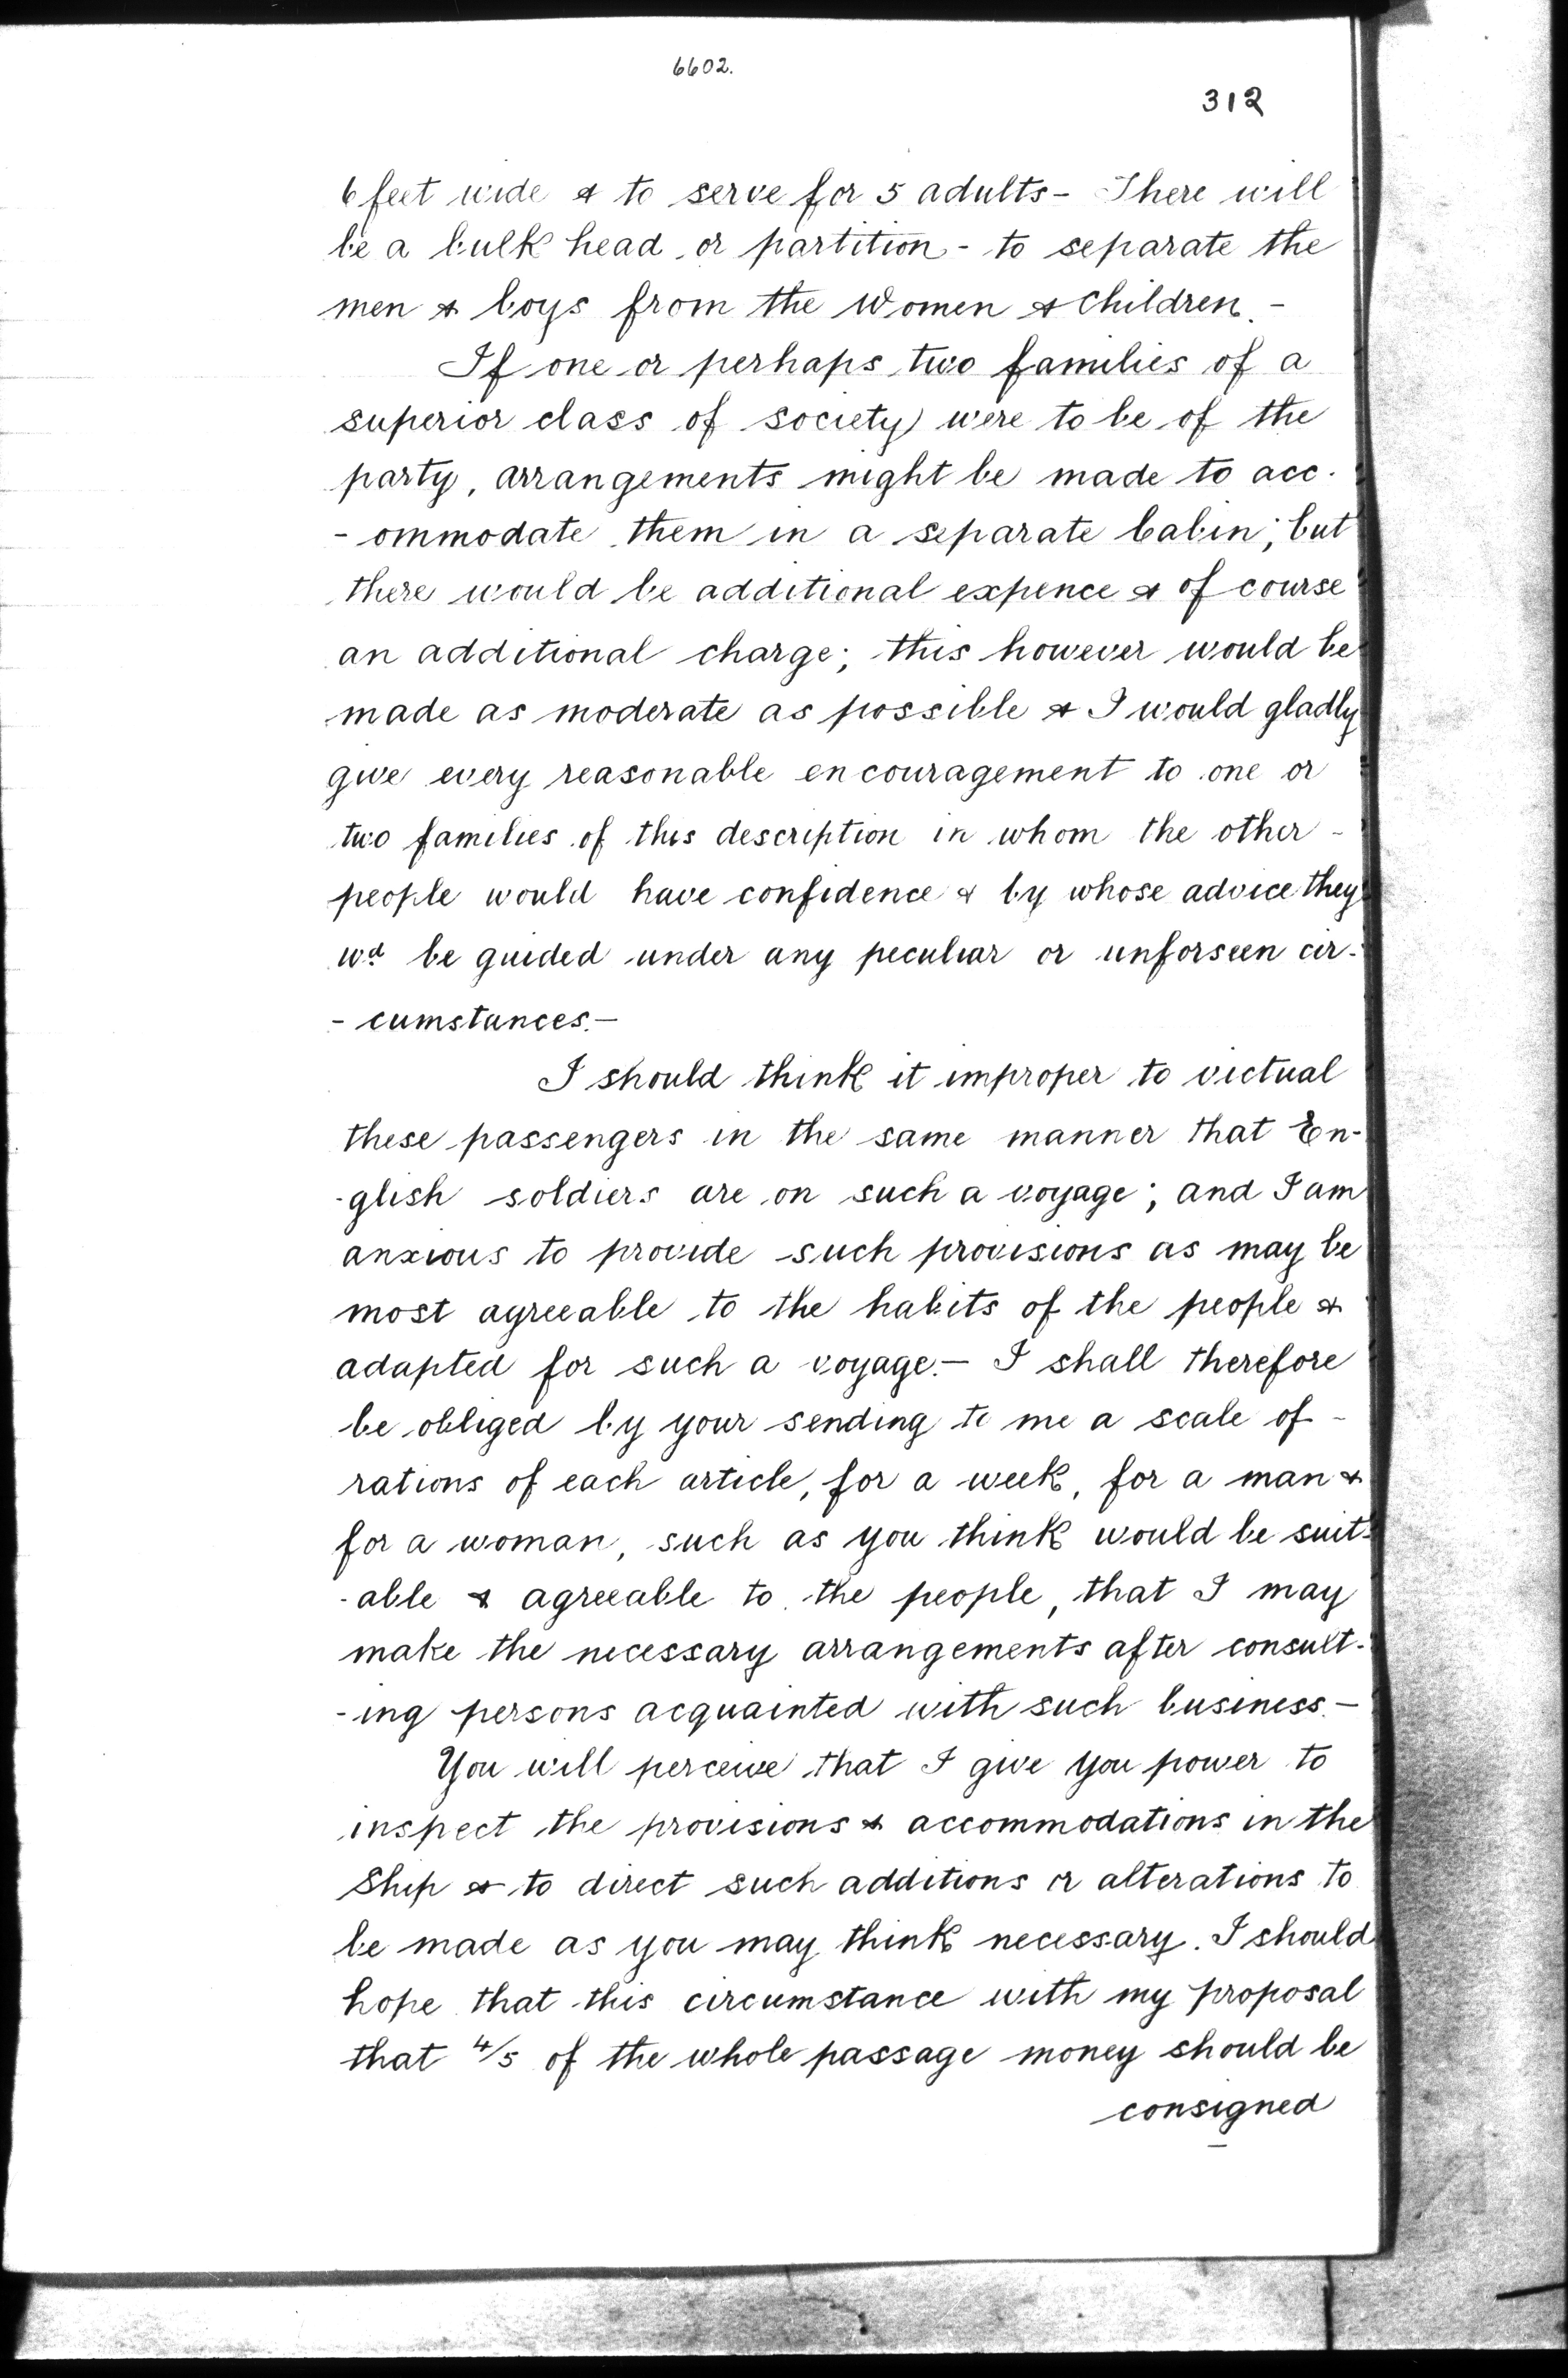 6602.
312
6 feet wide & to serve for 5 adults - There will
be a bulk head or partition - to separate the
men & boys from the Women & Children. -
If one or perhaps two families of a
superior class of society were to be of the
party, arrangements might be made to acc.
- ommodate them in a separate Cabin; but
there would be additional expence & of course
an additional charge; this however would be
made as moderate as possible & I would gladly
give every reasonable encouragement to one or
two families of this description in whom the other -
people would have confidence & by whose advice they
wd be guided under any peculiar or unforseen cir-
- cumstances. -
I should think it improper to victual
these passengers in the same manner that En-
-glish soldiers are on such a voyage; and I am
anxious to provide such provisions as may be
most agreeable to the habits of the people &
adapted for such a voyage. - I shall therefore
be obliged by your sending to me a scale of -
rations of each article, for a week, for a man &
for a woman, such as you think would be suit-
-able & agreeable to the people, that I may
make the necessary arrangements after consult-
-ing persons acquainted with such business. -
You will perceive that I give you power to
inspect the provisions & accommodations in the
Ship & to direct such additions or alterations to
be made as you may think necessary. I should
hope that this circumstance with my proposal
that 4/5 of the whole passage money should be
consigned